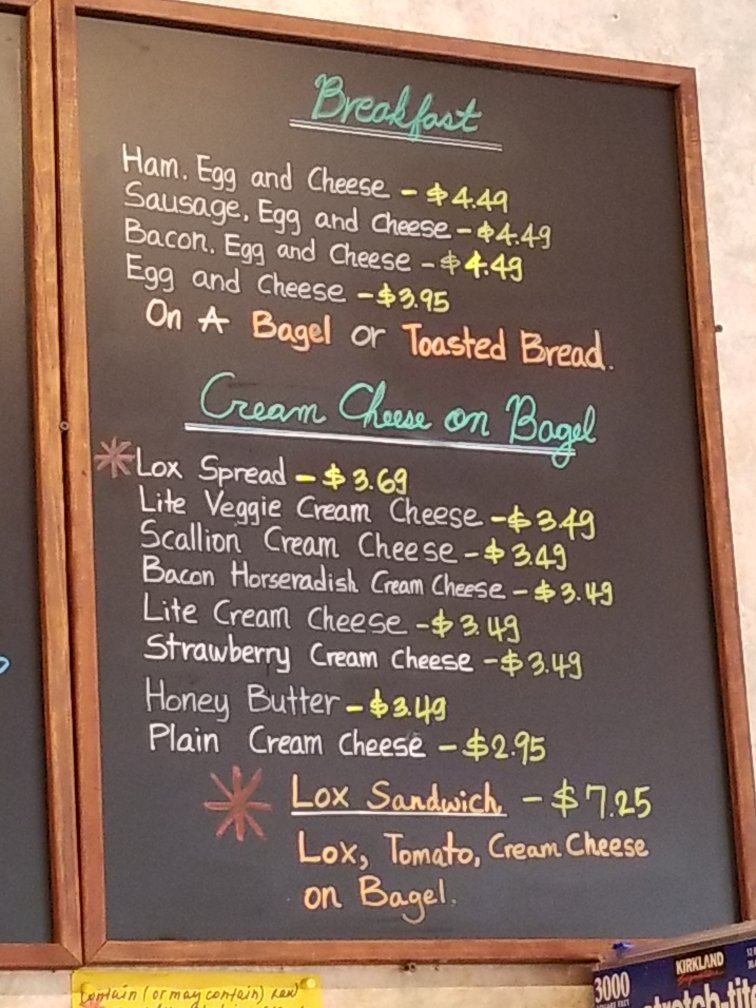 Breakfast
Ham, Egg and Cheese - $4.49
Sausage, Egg and Cheese - $4.49
Bacon, Egg and Cheese - $4.49
Egg and Cheese - $3.95
On A Bagel or Toasted Bread.
Cream Cheese on Bagel
*Lox Spread - $3.69
Lite Veggie Cream Cheese - $3.49
Scallion Cream Cheese - $3.49
Bacon Horseradish Cream Cheese - $3.49
Lite Cream Cheese - $3.49
Strawberry Cream Cheese - $3.49
Honey Butter - $3.49
Plain Cream Cheese - $2.95
* Lox Sandwich - $7.25
Lox, Tomato, Cream Cheese
on Bagel.
Contain (or may contain) raw
3000
KIRKLAND
Signature